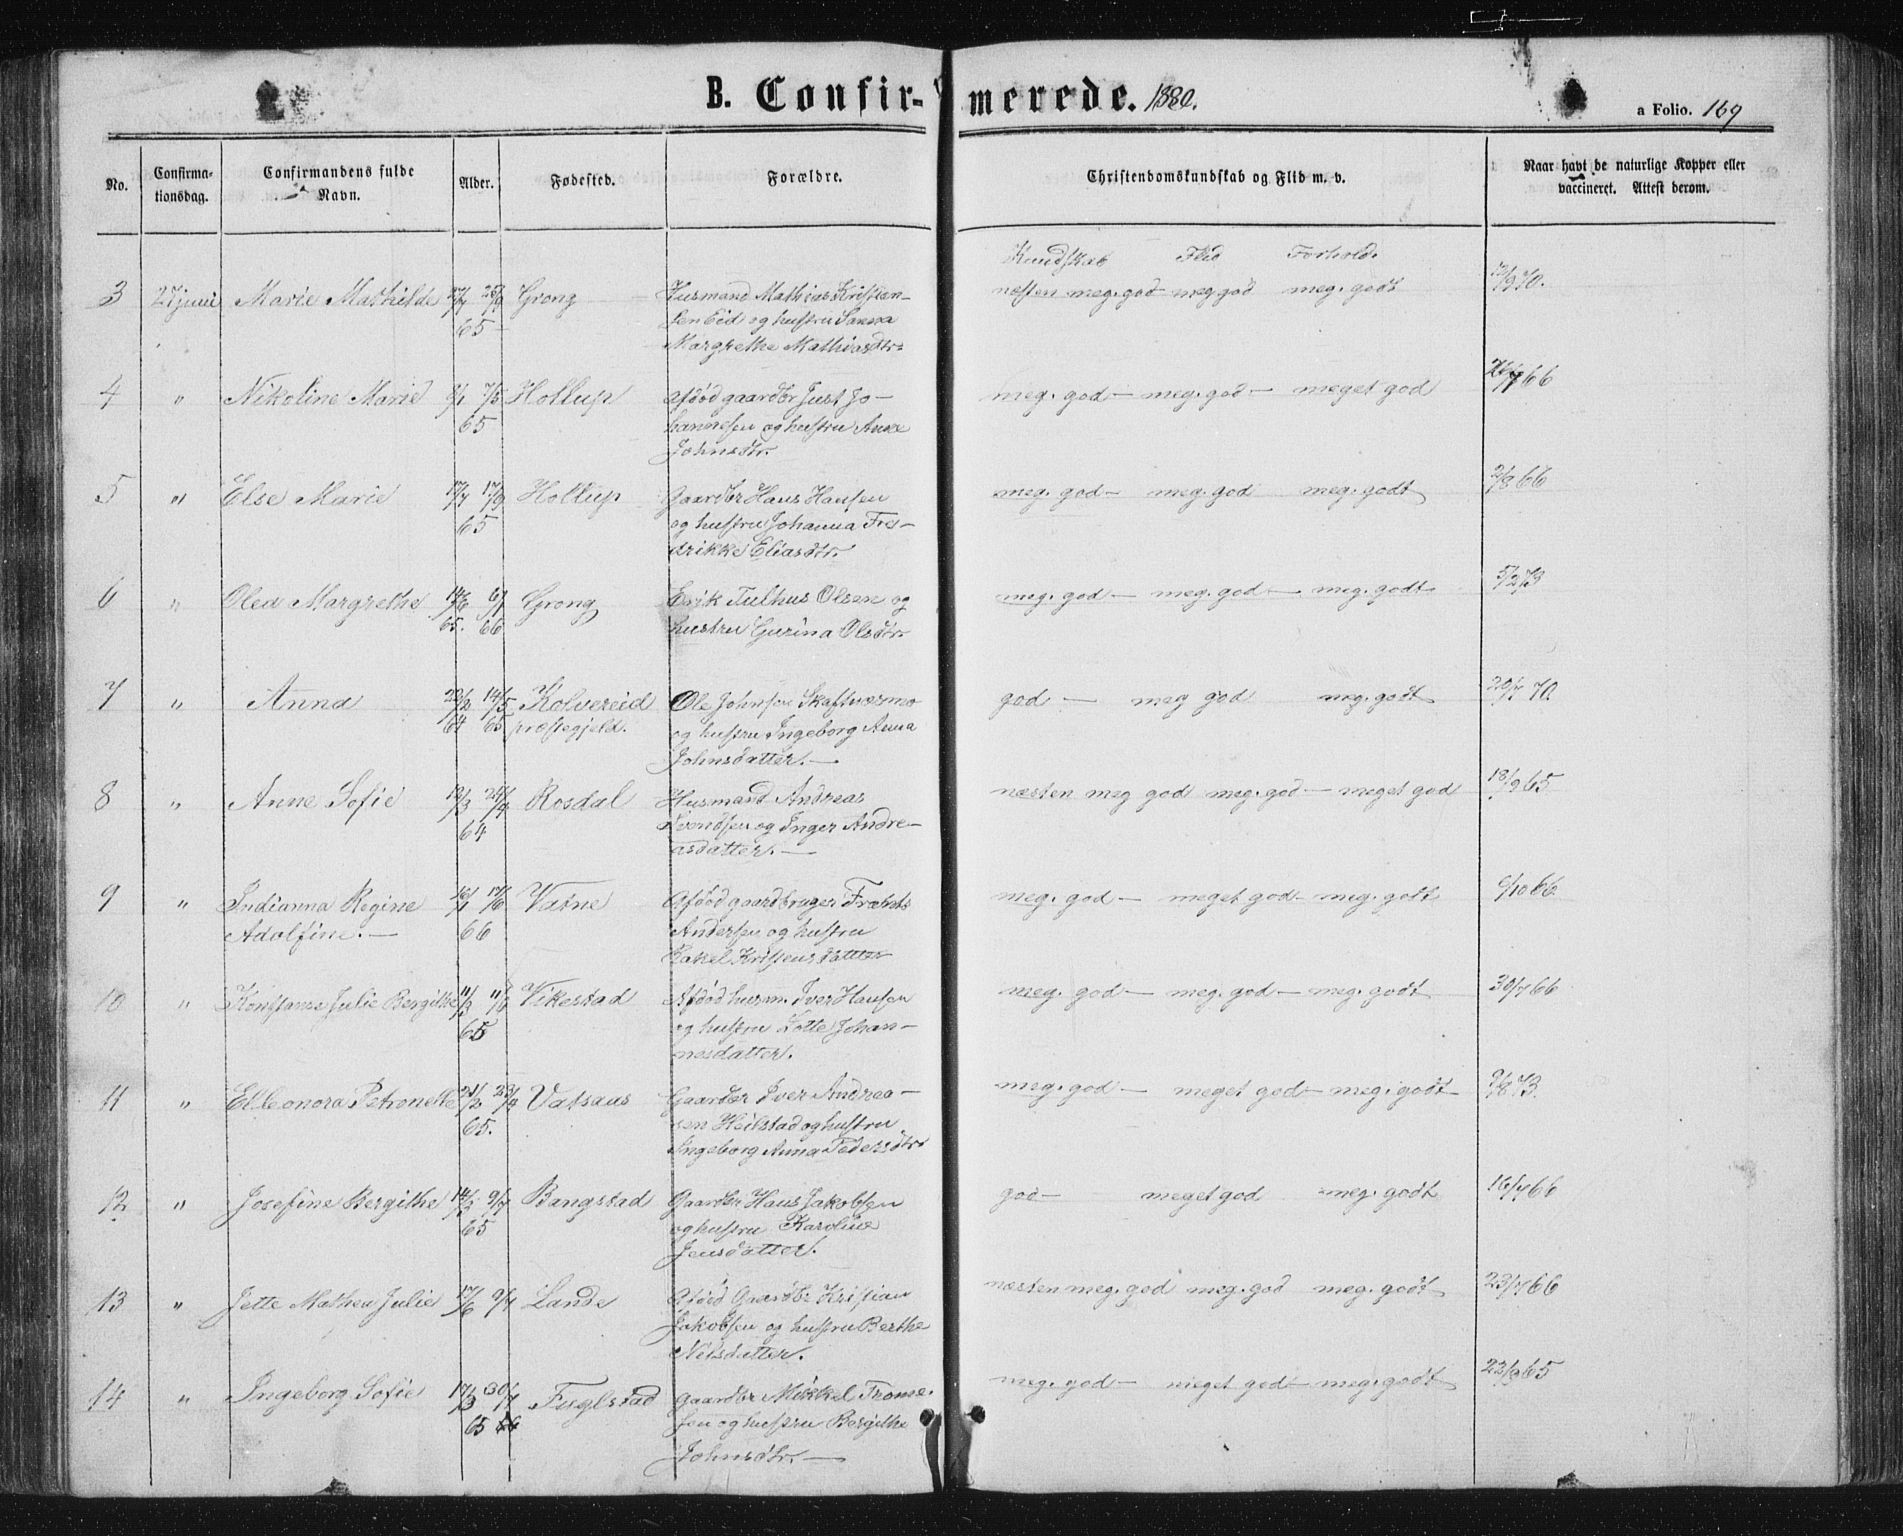 B. Confirmerede. 1880.
a Folio. 169
No.
Confirmationsdag.
Confirmandens fulde Navn.
Alder.
Fødested.
Forældre.
Christendomskundskab og Flid m. v.
Naar havt de naturlige Kopper eller vaccineret. Attest derom.
Kundskab Flid Forhold.
3 27 juni Marie Mathilde Grong Husmand Mathias Kristian- næsten meg. god meg god meg. godt 12/9 70.
65 sen Eid og hustru
Margrethe Mathiasdtr.
4 " Nikoline Marie 7/5 Hollup Afdød gaardbr Just Jo- meg. god - meg. god - meget god 66
65 hannesen og hustru Anne
Johnsdtr.
5 " Else Marie 17/7 17/9 Hollup Gaardbr Hans Hansen meg. god - meg. god meg. godt 2/8 66
65 og hustru Johanna Fre-
drikke Eliasdtr.
6 " Olea Margrethe 14/6 6/1 Grong Erik Tulhus Olsen og meg. god - meg. god - meg. godt 5/2 73
65. 66 hustru Gurina Olsdtr.
7 " Anna 22/2 14/5 Kolvereid Ole Johnsen Skaftnæsmo god - meg god meg. godt 20/7 70.
64 65 præstegjeld. og hustru Ingeborg Anna
Johnsdatter. -
8 " Anne Sofie 12/3 24/4 Rosdal Husmand Andreas næsten meg god meg. god - meget god 18/9 65.
64 Svendsen og Inger Andre-
asdatter. -
9 " Indianna Regine 16/1 17/6 Vatne Afdød gaardbruger Frants meg. god - meget god - meg. godt 6/10 66.
Adolfine. - 66 Andersen og hustru
Rakel Kristensdatter
10 " Konstanse Julie Bergithe 11/3 11/6 Vikestad Afdød husm. Iver Hansen meg. god - meg. god - meg. godt 30/7 66
65 og hustru Lotte Johan-
nesdatter.
11 " Elleonora Petronelle 21/2 23/4 Vatsaas Gaardbr Iver Andrea- meg. god - meget god - meg. godt 9/8 73.
65. sen Heilstad og hustru
Ingeborg Anna Pedersdtr.
12 " Josefine Bergithe 14/2 9/7 Bangstad Gaardbr Hans Jakobsen god - meget god meg. godt 16/7 66
65 og hustru Karoline
Jensdatter.
13 " Jette Mathea Julie 17/6 9/7 Lande Afdød Gaardbr Kristian næsten meg. god meg. god meg. godt 23/7 66
Jakobsen og hustru Berthe
Nilsdatter.
14 " Ingeborg Sofie 17/3 30/7 Fuglstad Gaardbr Mikkel Tomme- meg. god - meget god - meg. godt 23/9 65
65 sen og hustru Bergithe
Johnsdtr. -